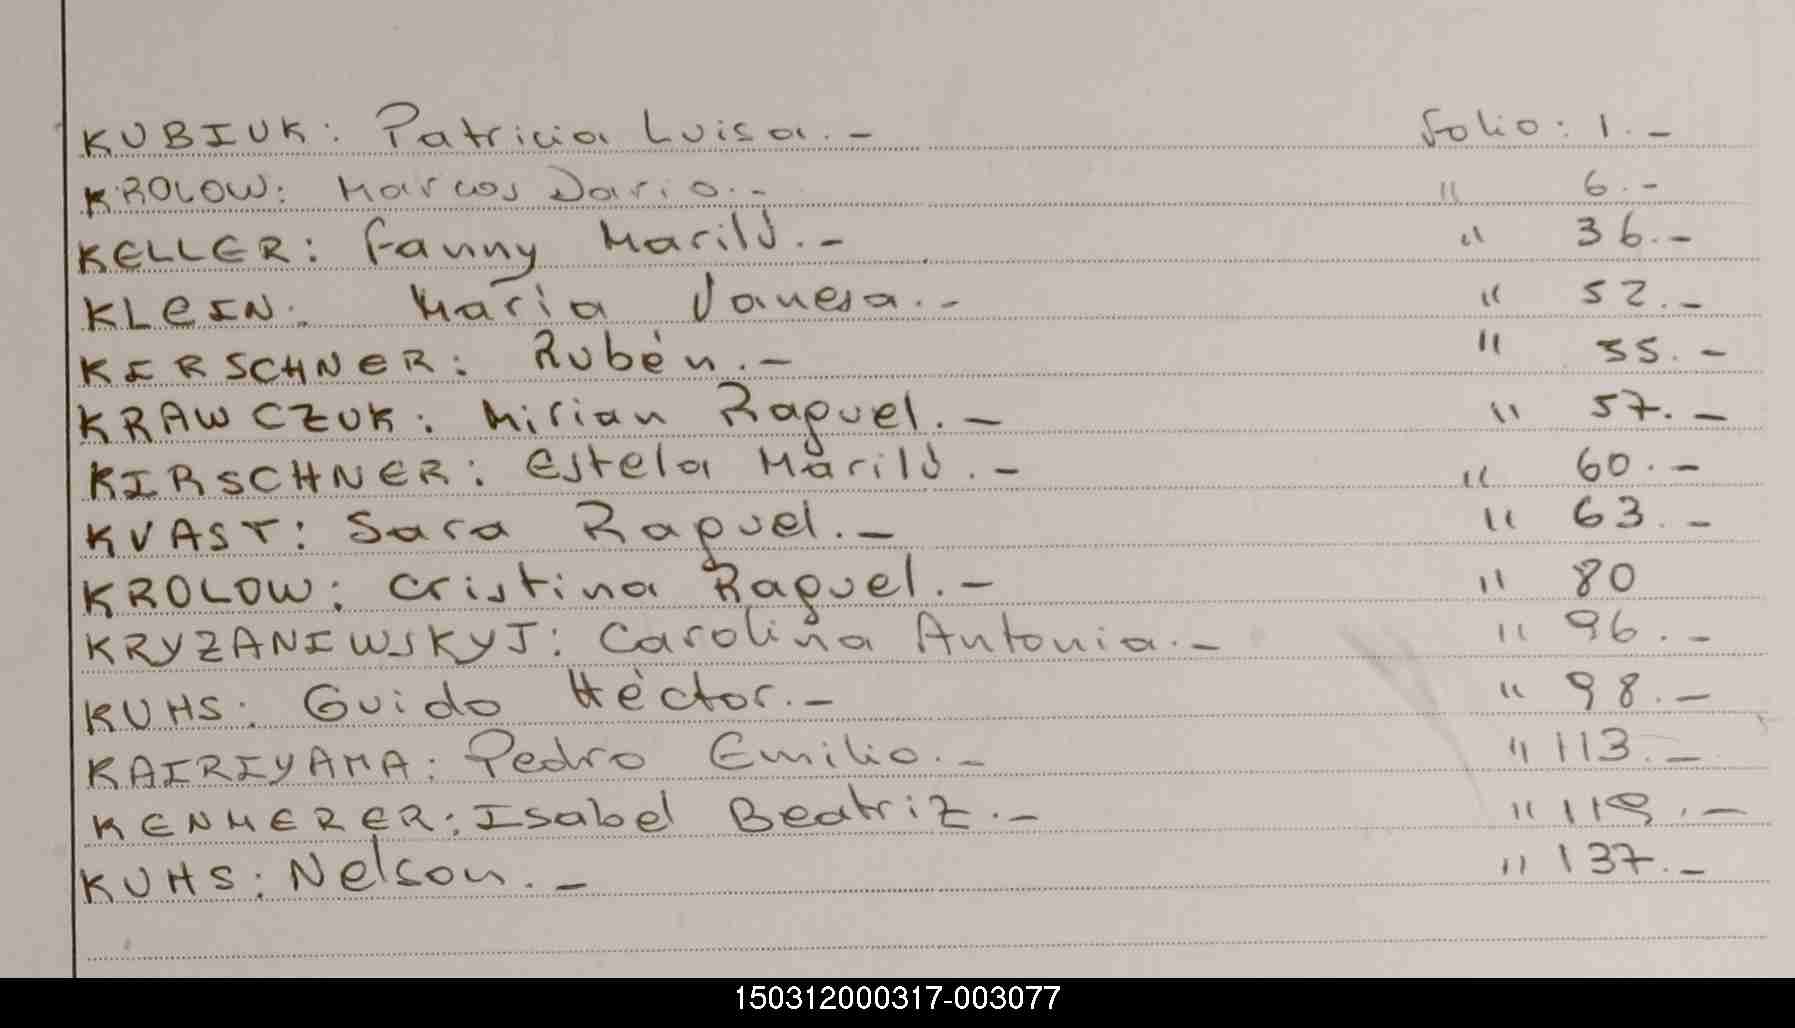 KUBIUK: Patricia Luisa.- Folio: 1.-
KROLOW: Marcos Dario.- " 6.-
KELLER: Fanny Marilú.- " 36.-
KLEIN: María Vanesa.- " 52.-
KIRSCHNER: Rubén.- " 55.-
KRAWCZUK: Mirian Raquel.- " 57.-
KIRSCHNER: Estela Marilú.- " 60.-
KVAST: Sara Raquel.- " 63.-
KROLOW: Cristina Raquel.- " 80
KRYZANIWSKYJ: Carolina Antonia.- " 96.-
KUHS: Guido Héctor.- " 98.-
KAIRIYAMA: Pedro Emilio.- " 113.-
KENMERER: Isabel Beatriz.- " 119.-
KUHS: Nelson.- " 137.-
150312000317-003077